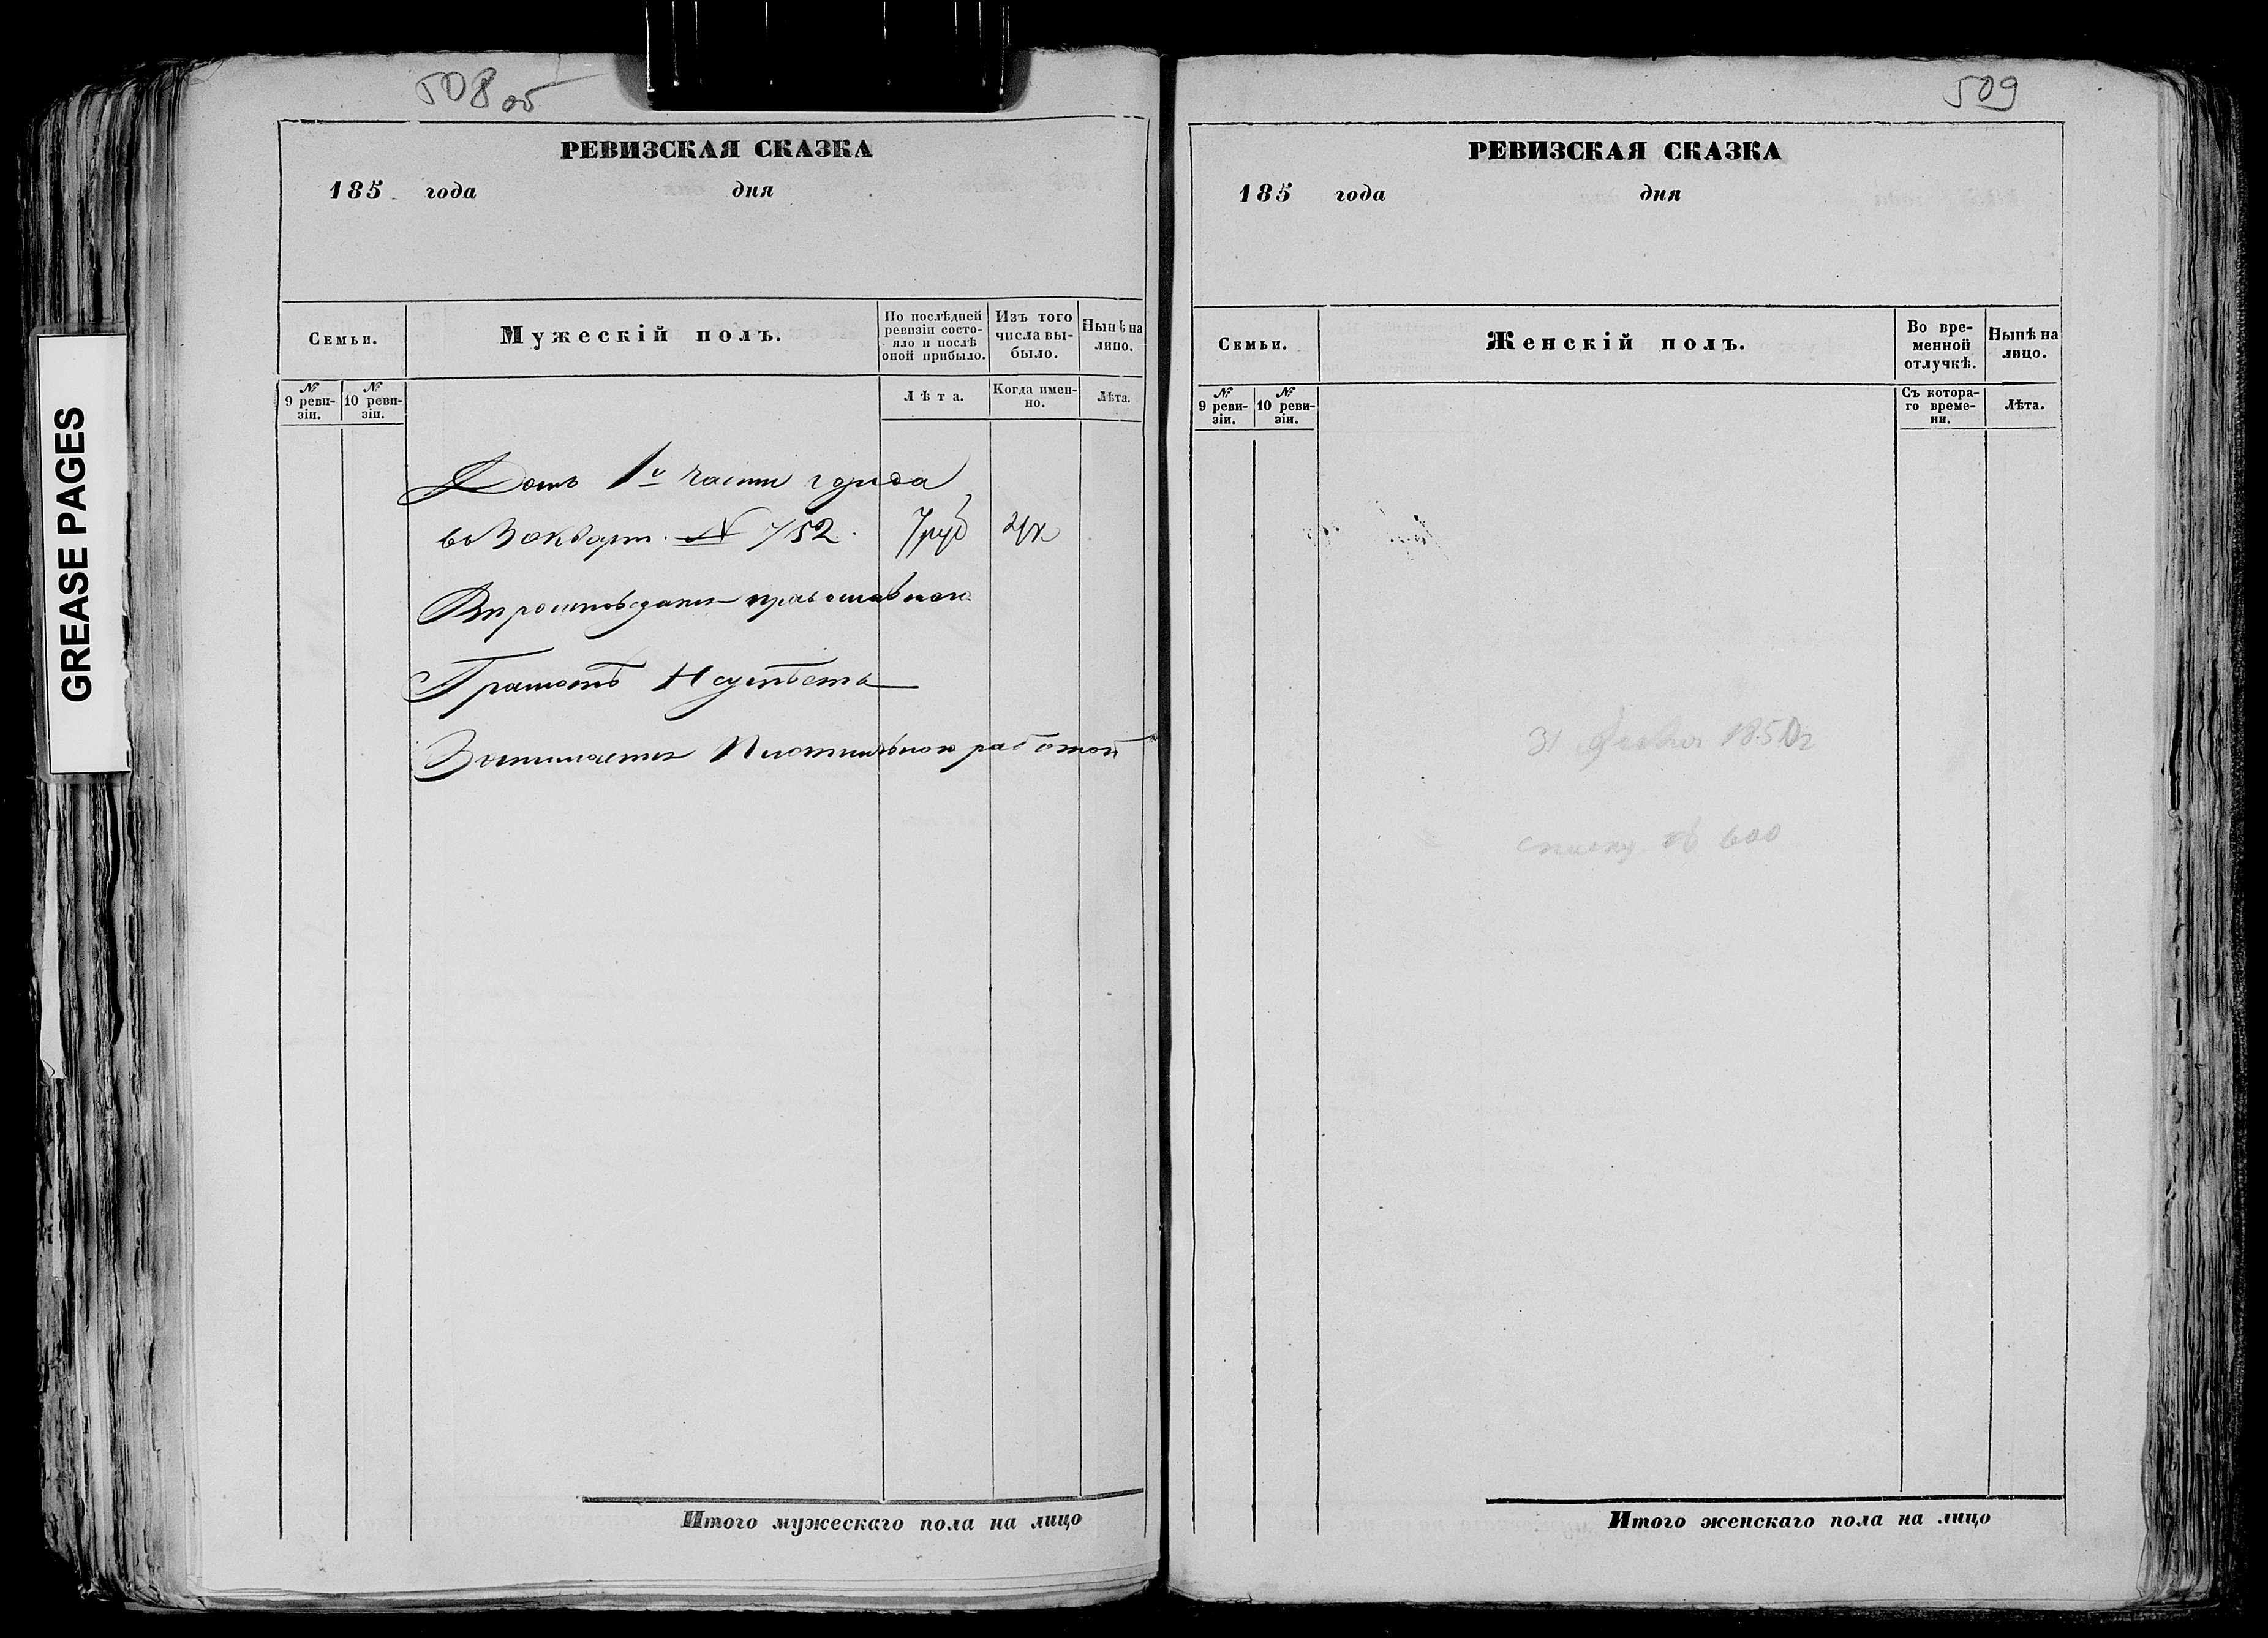 GREASE PAGES
508 об
РЕВИЗСКАЯ СКАЗКА
185 года дня
Семьи.
Мужескій полъ.
По послѣдней ревизіи состояло и послѣ оной прибыло.
Изъ того числа выбыло.
Нынѣ на лицо.
№ 9 ревизіи.
№ 10 ревизіи.
Лѣта.
Когда именно.
Лѣта.
Домъ 1й части города
въ 3 кварт. № 752. руб
Вѣроисповѣданія православнаго
Грамотѣ Неумѣетъ
Занимается Плотничьною работой
Итого мужескаго пола на лицо
509
РЕВИЗСКАЯ СКАЗКА
185 года дня
Семьи.
Женскій полъ.
Во временной отлучкѣ.
Нынѣ на лицо.
№ 9 ревизіи.
№ 10 ревизіи.
Съ котораго времени.
Лѣта.
31 185
списку № 600
Итого женскаго пола на лицо